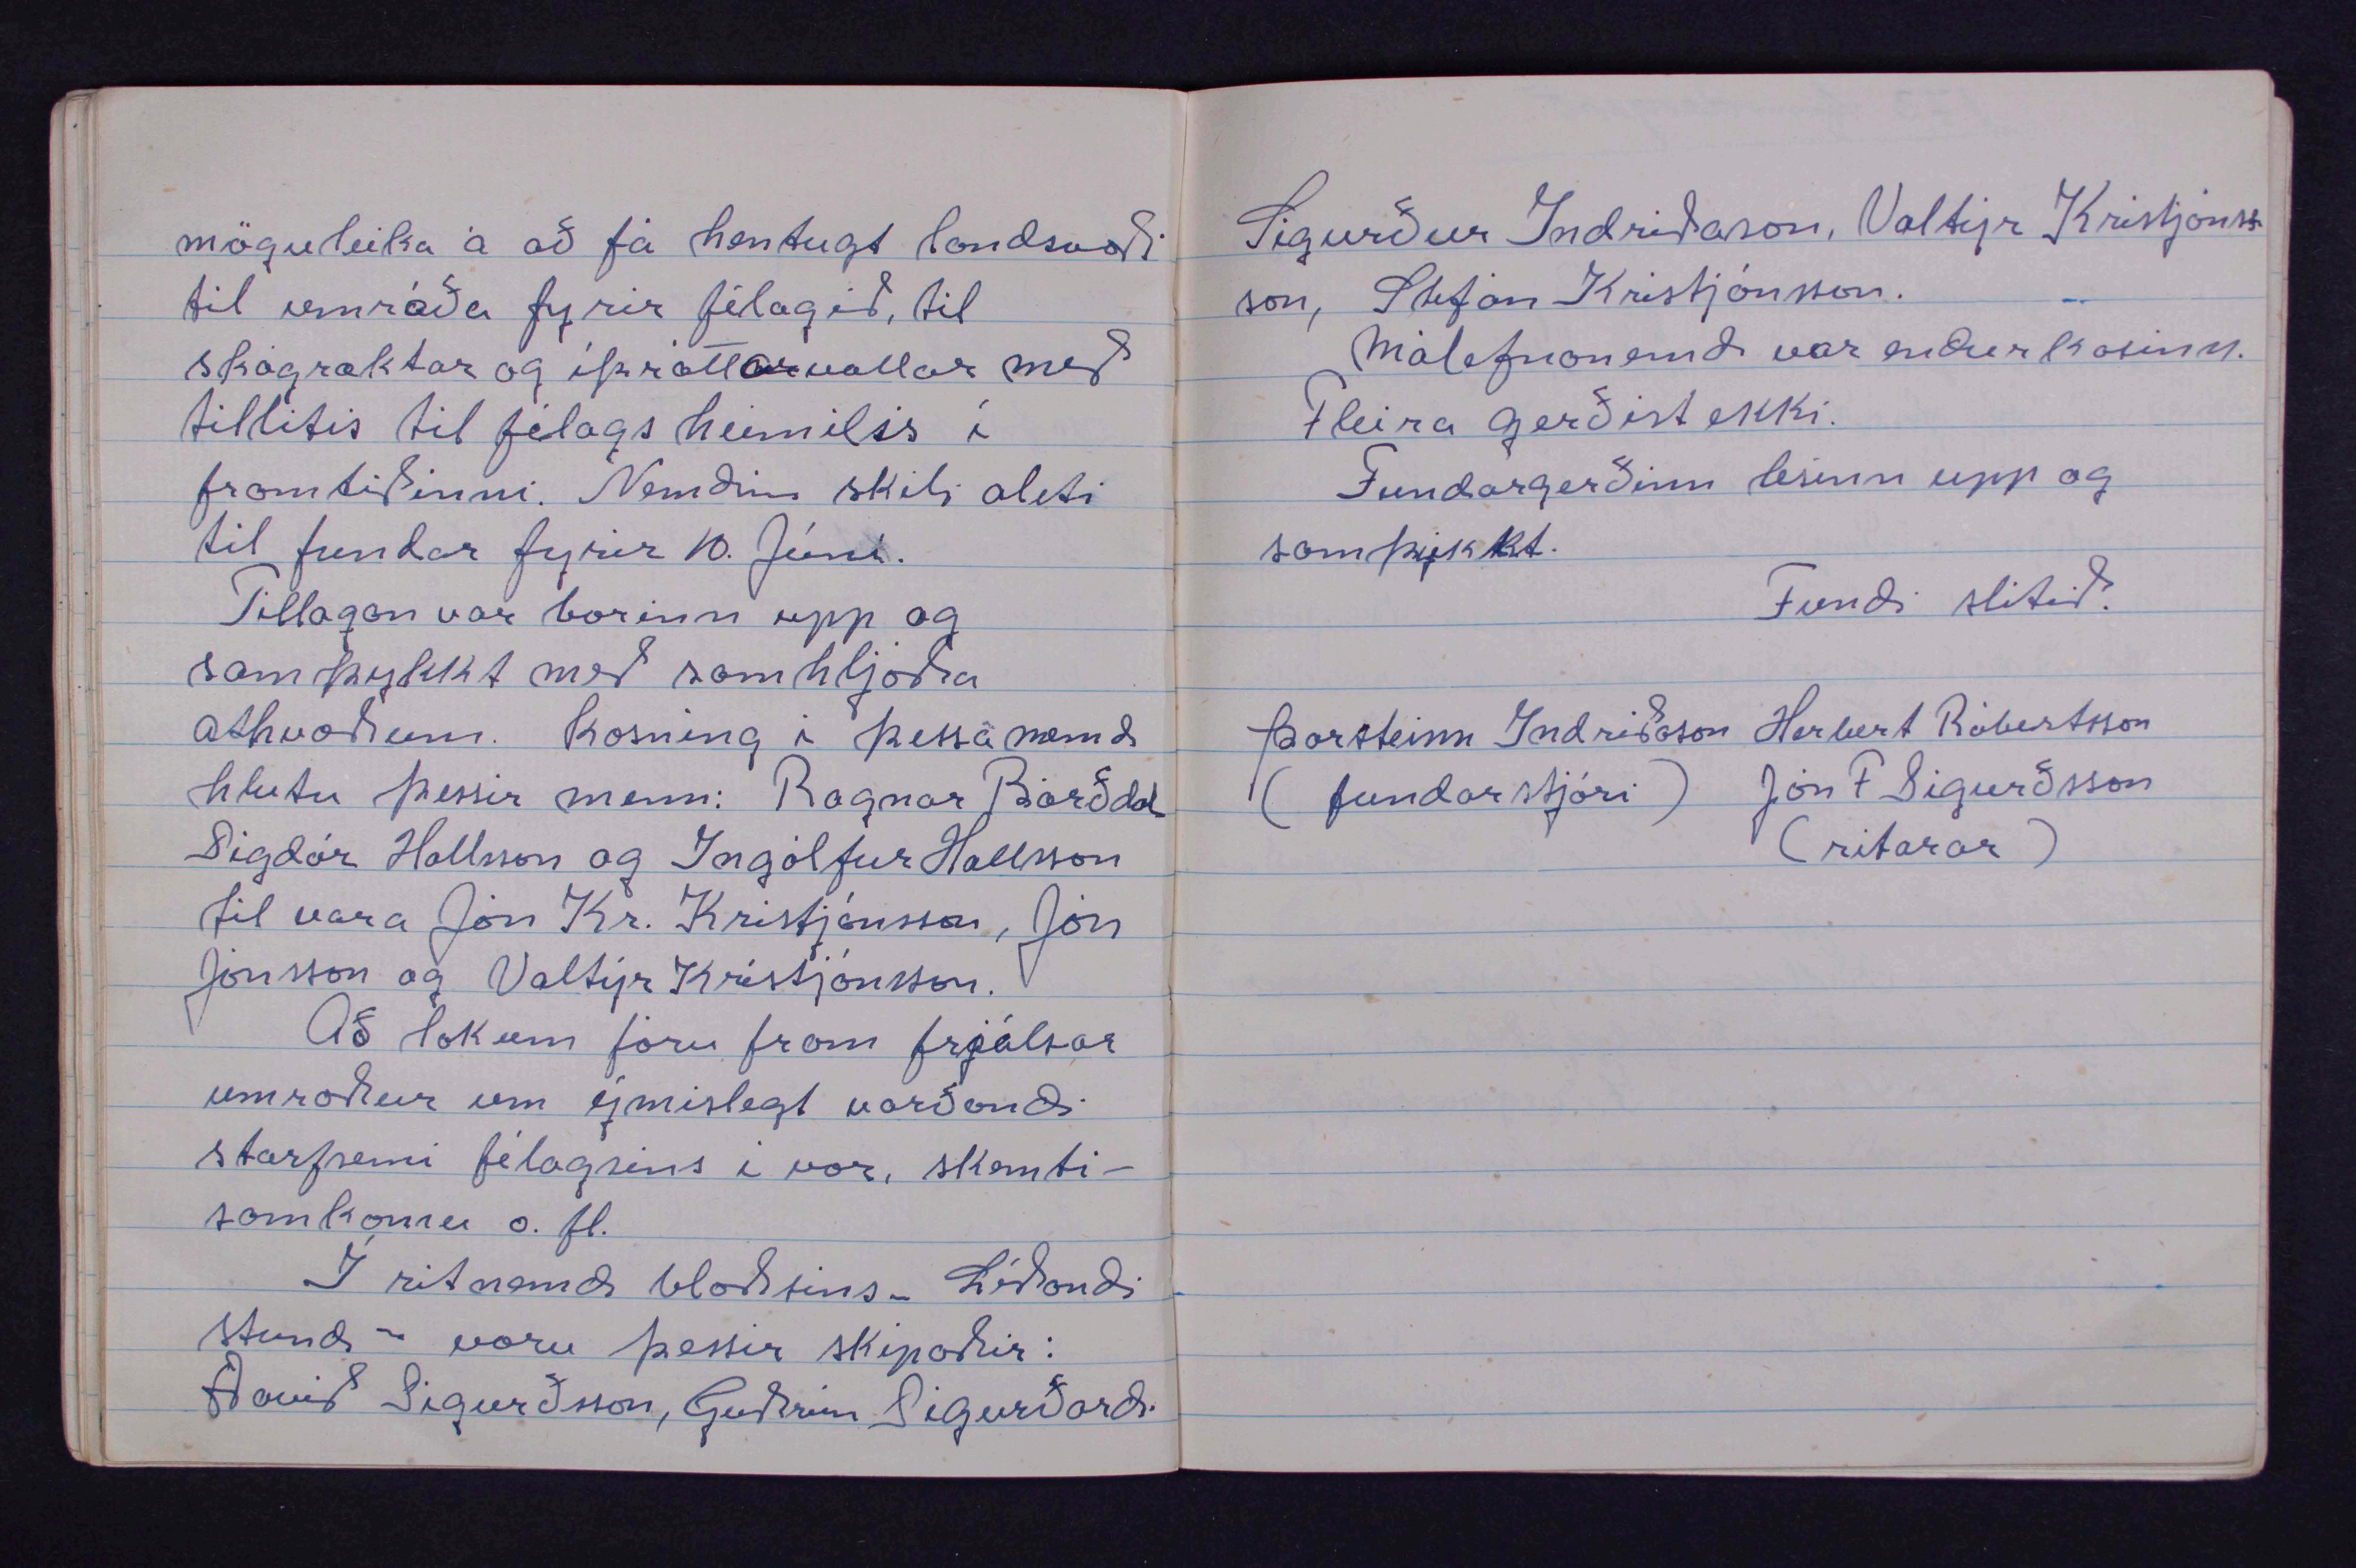 möguleika á að fá hentugt landsvæði
til umráða fyrir félagið, til
skógræktar og íþróttarvallar með
tillitis til félags heimilis í
framtíðinni. Nemdin skili aleti
til fundar fyrir 10. Júní.
Tillagan var borinn upp og
samþykkt með samhljóða
athvæðum. Kosning í þessa nemd
hlutu þessir menn: Ragnar Bárðdal
Sigdór Hallsson og Ingólfur Hallsson
til vara Jón Kr. Kristjánsson, Jón
Jónsson og Valtýr Kristjánsson.
Að lokum fóru fram frjálsar
umræður um ýmislegt varðandi
starfsemi félagsins í vor, skemti-
samkomu o. fl.
Í ritnemd blaðsins - Líðandi
stund - voru þessir skipaðir:
Davíð Sigurðsson, Guðrún Sigurðard.
Sigurður Indriðason, Valtýr Kristjáns
son, Stefán Kristjánsson.
Málefnanemd var endurkosinn.
Fleira gerðist ekki.
Fundargerðinn lesinn upp og
samþykkt.
Fundi slitið.
Þorsteinn Indriðason Herbert Róbertsson
(fundarstjóri) Jón F Sigurðsson
(ritarar)